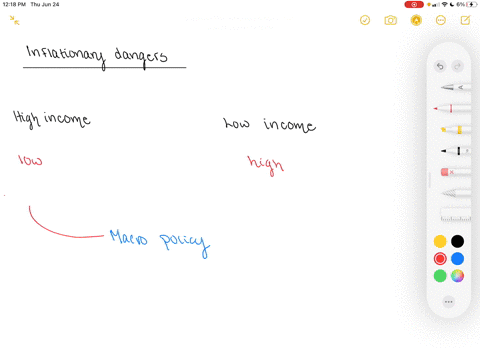 12:18 PM Thu Jun 24
6%
Inflationary dangers
High income
Low income
low
high
Macro policy